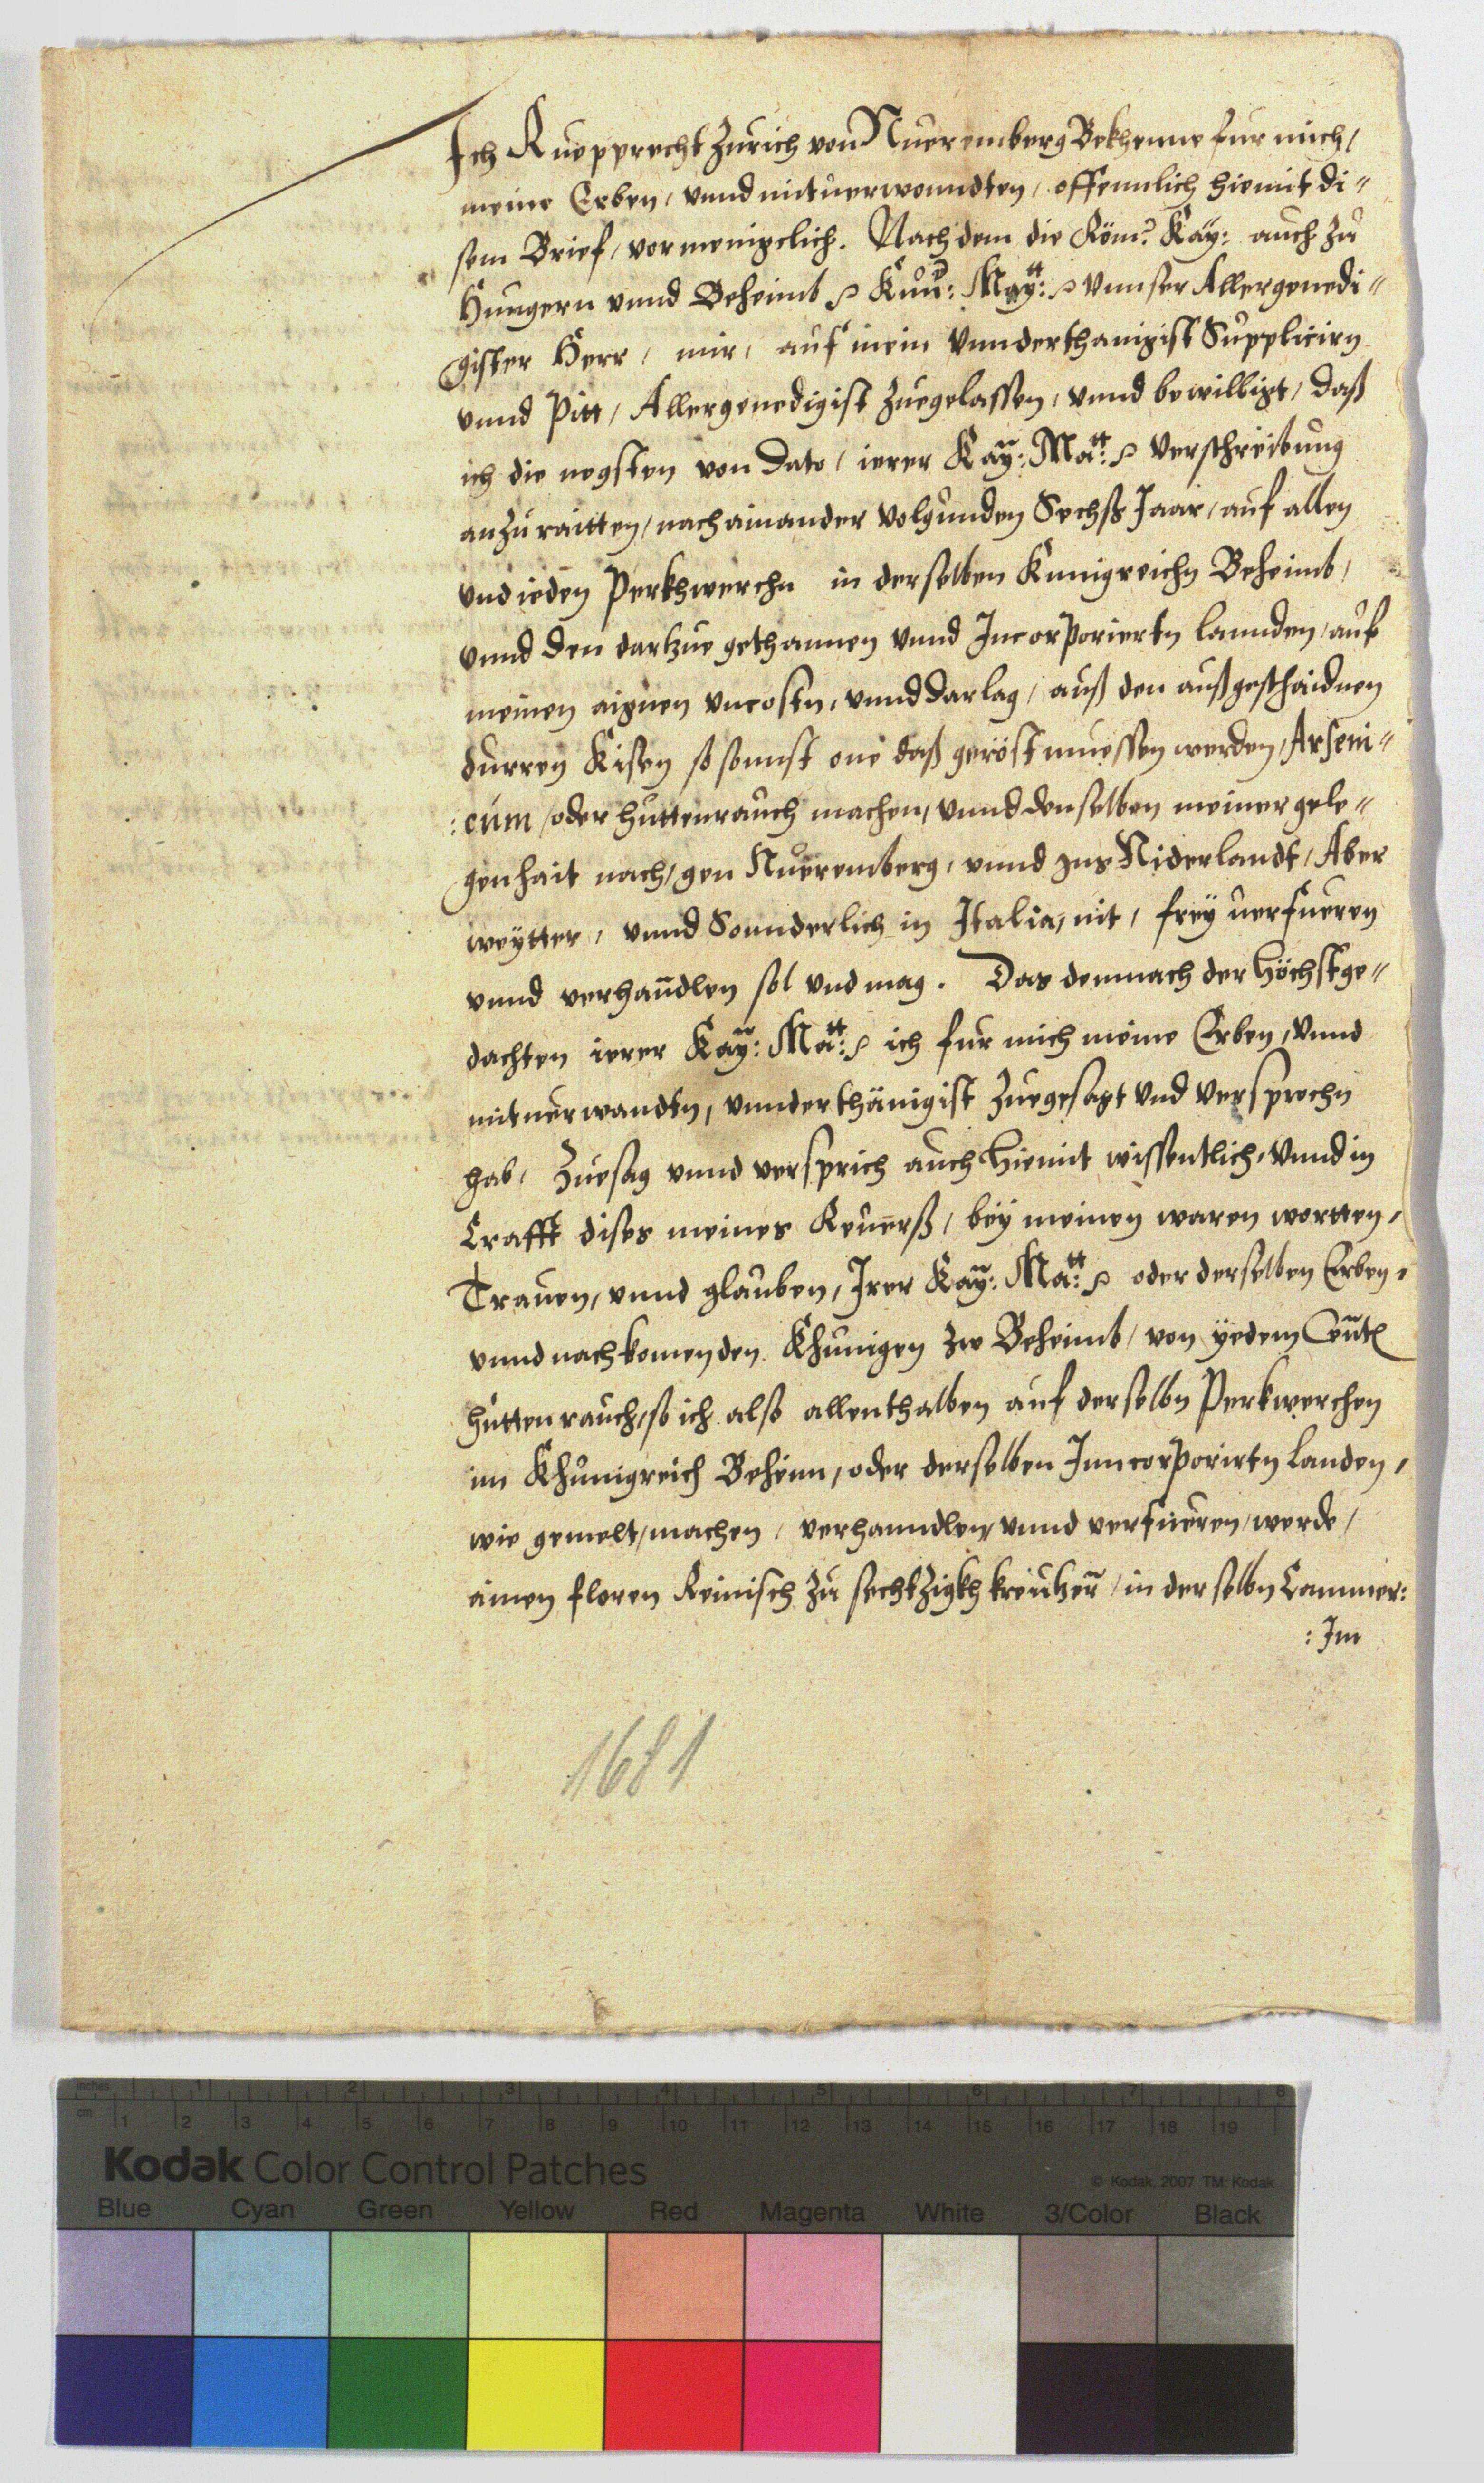 Ich Ruepprecht Zurich von Nueremberg Bekhenne fur mich /
meine Erben / vnnd mituerwonndten / offennlich hiemit di"
sem Brief / vor menigclich. Nach dem die Röm: Kaÿ: auch zu
Hungern vnnd Beheimb Kün: May:tt vnnser Allergenedi"
gister Herr / mir / auf mein vnnderthanigist Supplicirn
vnnd Pitt / Allergenedigist zuegelassen / vnnd bewilligt / daß
ich die negsten von Dato / ierer Kaÿ: Ma:tt verschreibung
anzuraitten / nacheinander volgunden Sechß Jaar / auf allen
vnd ieden Perkhwerchn in derselben Kunigreichn Beheimb /
vnnd den dartzue gethannen vnnd Incorporiertn lannden / auf
meinen aignen vncosten, vnnd darlag / auß den außgeschaidnen
durren Kisen so sonnst one daß geröst muessen werden / Arseni"
:cum / oder huttenrauch machen / vnnd denselben meiner gele"
genhait nach / gen Nueremberg, vnnd ins Niderlandt / Aber
weÿtter, vnnd Sonnderlich in Italia, nit / freÿ uerfueren
vnnd verhandlen sol vnd mag. Das demnach der höchstge"
dachten ierer Kaÿ: Ma:tt ich fur mich meine Erben, vnnd
mituerwandtn, vnnderthänigist zuegesagt vnd versprochn
hab / Zuesag vnnd versprich auch hiemit wissentlich, vnnd in
Crafft dises meines Reuerß / beÿ meinen waren wortten,
Trauen, vnnd glauben, Irer Kaÿ: Ma:tt oder derselben Erben,
vnnd nachkomenden Khunigen zw Beheimb / von ÿedem Centn
huttenrauch, so ich also allenthalben auf derselbn Perkwerchen
im Khunigreich Beheim, oder derselben Inncorporirtn landen,
wie gemelt / machen / verhanndlen vnnd verfueren / werde /
ainen floren Reinisch zu sechtzigkh kreutzern / in derselbn Cammer:
: Im
1681
inches 1 2 3 4 5 6 7 8
cm 1 2 3 4 5 6 7 8 9 10 11 12 13 14 15 16 17 18 19
Kodak Color Control Patches
© Kodak, 2007 TM: Kodak
Blue Cyan Green Yellow Red Magenta White 3/Color Black